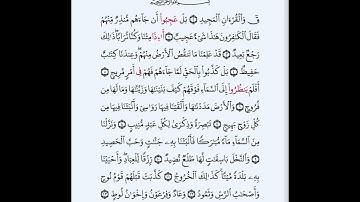 قٓ ۚ وَٱلْقُرْءَانِ ٱلْمَجِيدِ ۝ بَلْ عَجِبُوٓا۟ أَن جَآءَهُم مُّنذِرٌ مِّنْهُمْ
فَقَالَ ٱلْكَٰفِرُونَ هَٰذَا شَىْءٌ عَجِيبٌ ۝ أَءِذَا مِتْنَا وَكُنَّا تُرَابًا ۖ ذَٰلِكَ
رَجْعٌۢ بَعِيدٌ ۝ قَدْ عَلِمْنَا مَا تَنقُصُ ٱلْأَرْضُ مِنْهُمْ ۖ وَعِندَنَا كِتَٰبٌ
حَفِيظٌۢ ۝ بَلْ كَذَّبُوا۟ بِٱلْحَقِّ لَمَّا جَآءَهُمْ فَهُمْ فِىٓ أَمْرٍ مَّرِيجٍ ۝
أَفَلَمْ يَنظُرُوٓا۟ إِلَى ٱلسَّمَآءِ فَوْقَهُمْ كَيْفَ بَنَيْنَٰهَا وَزَيَّنَّٰهَا وَمَا لَهَا مِن
فُرُوجٍ ۝ وَٱلْأَرْضَ مَدَدْنَٰهَا وَأَلْقَيْنَا فِيهَا رَوَٰسِىَ وَأَنۢبَتْنَا فِيهَا مِن
كُلِّ زَوْجٍۭ بَهِيجٍ ۝ تَبْصِرَةً وَذِكْرَىٰ لِكُلِّ عَبْدٍ مُّنِيبٍ ۝ وَنَزَّلْنَا
مِنَ ٱلسَّمَآءِ مَآءً مُّبَٰرَكًا فَأَنۢبَتْنَا بِهِۦ جَنَّٰتٍ وَحَبَّ ٱلْحَصِيدِ
۝ وَٱلنَّخْلَ بَاسِقَٰتٍ لَّهَا طَلْعٌ نَّضِيدٌ ۝ رِّزْقًا لِّلْعِبَادِ ۖ وَأَحْيَيْنَا
بِهِۦ بَلْدَةً مَّيْتًا ۚ كَذَٰلِكَ ٱلْخُرُوجُ ۝ كَذَّبَتْ قَبْلَهُمْ قَوْمُ نُوحٍ
وَأَصْحَٰبُ ٱلرَّسِّ وَثَمُودُ ۝ وَعَادٌ وَفِرْعَوْنُ وَإِخْوَٰنُ لُوطٍ ۝